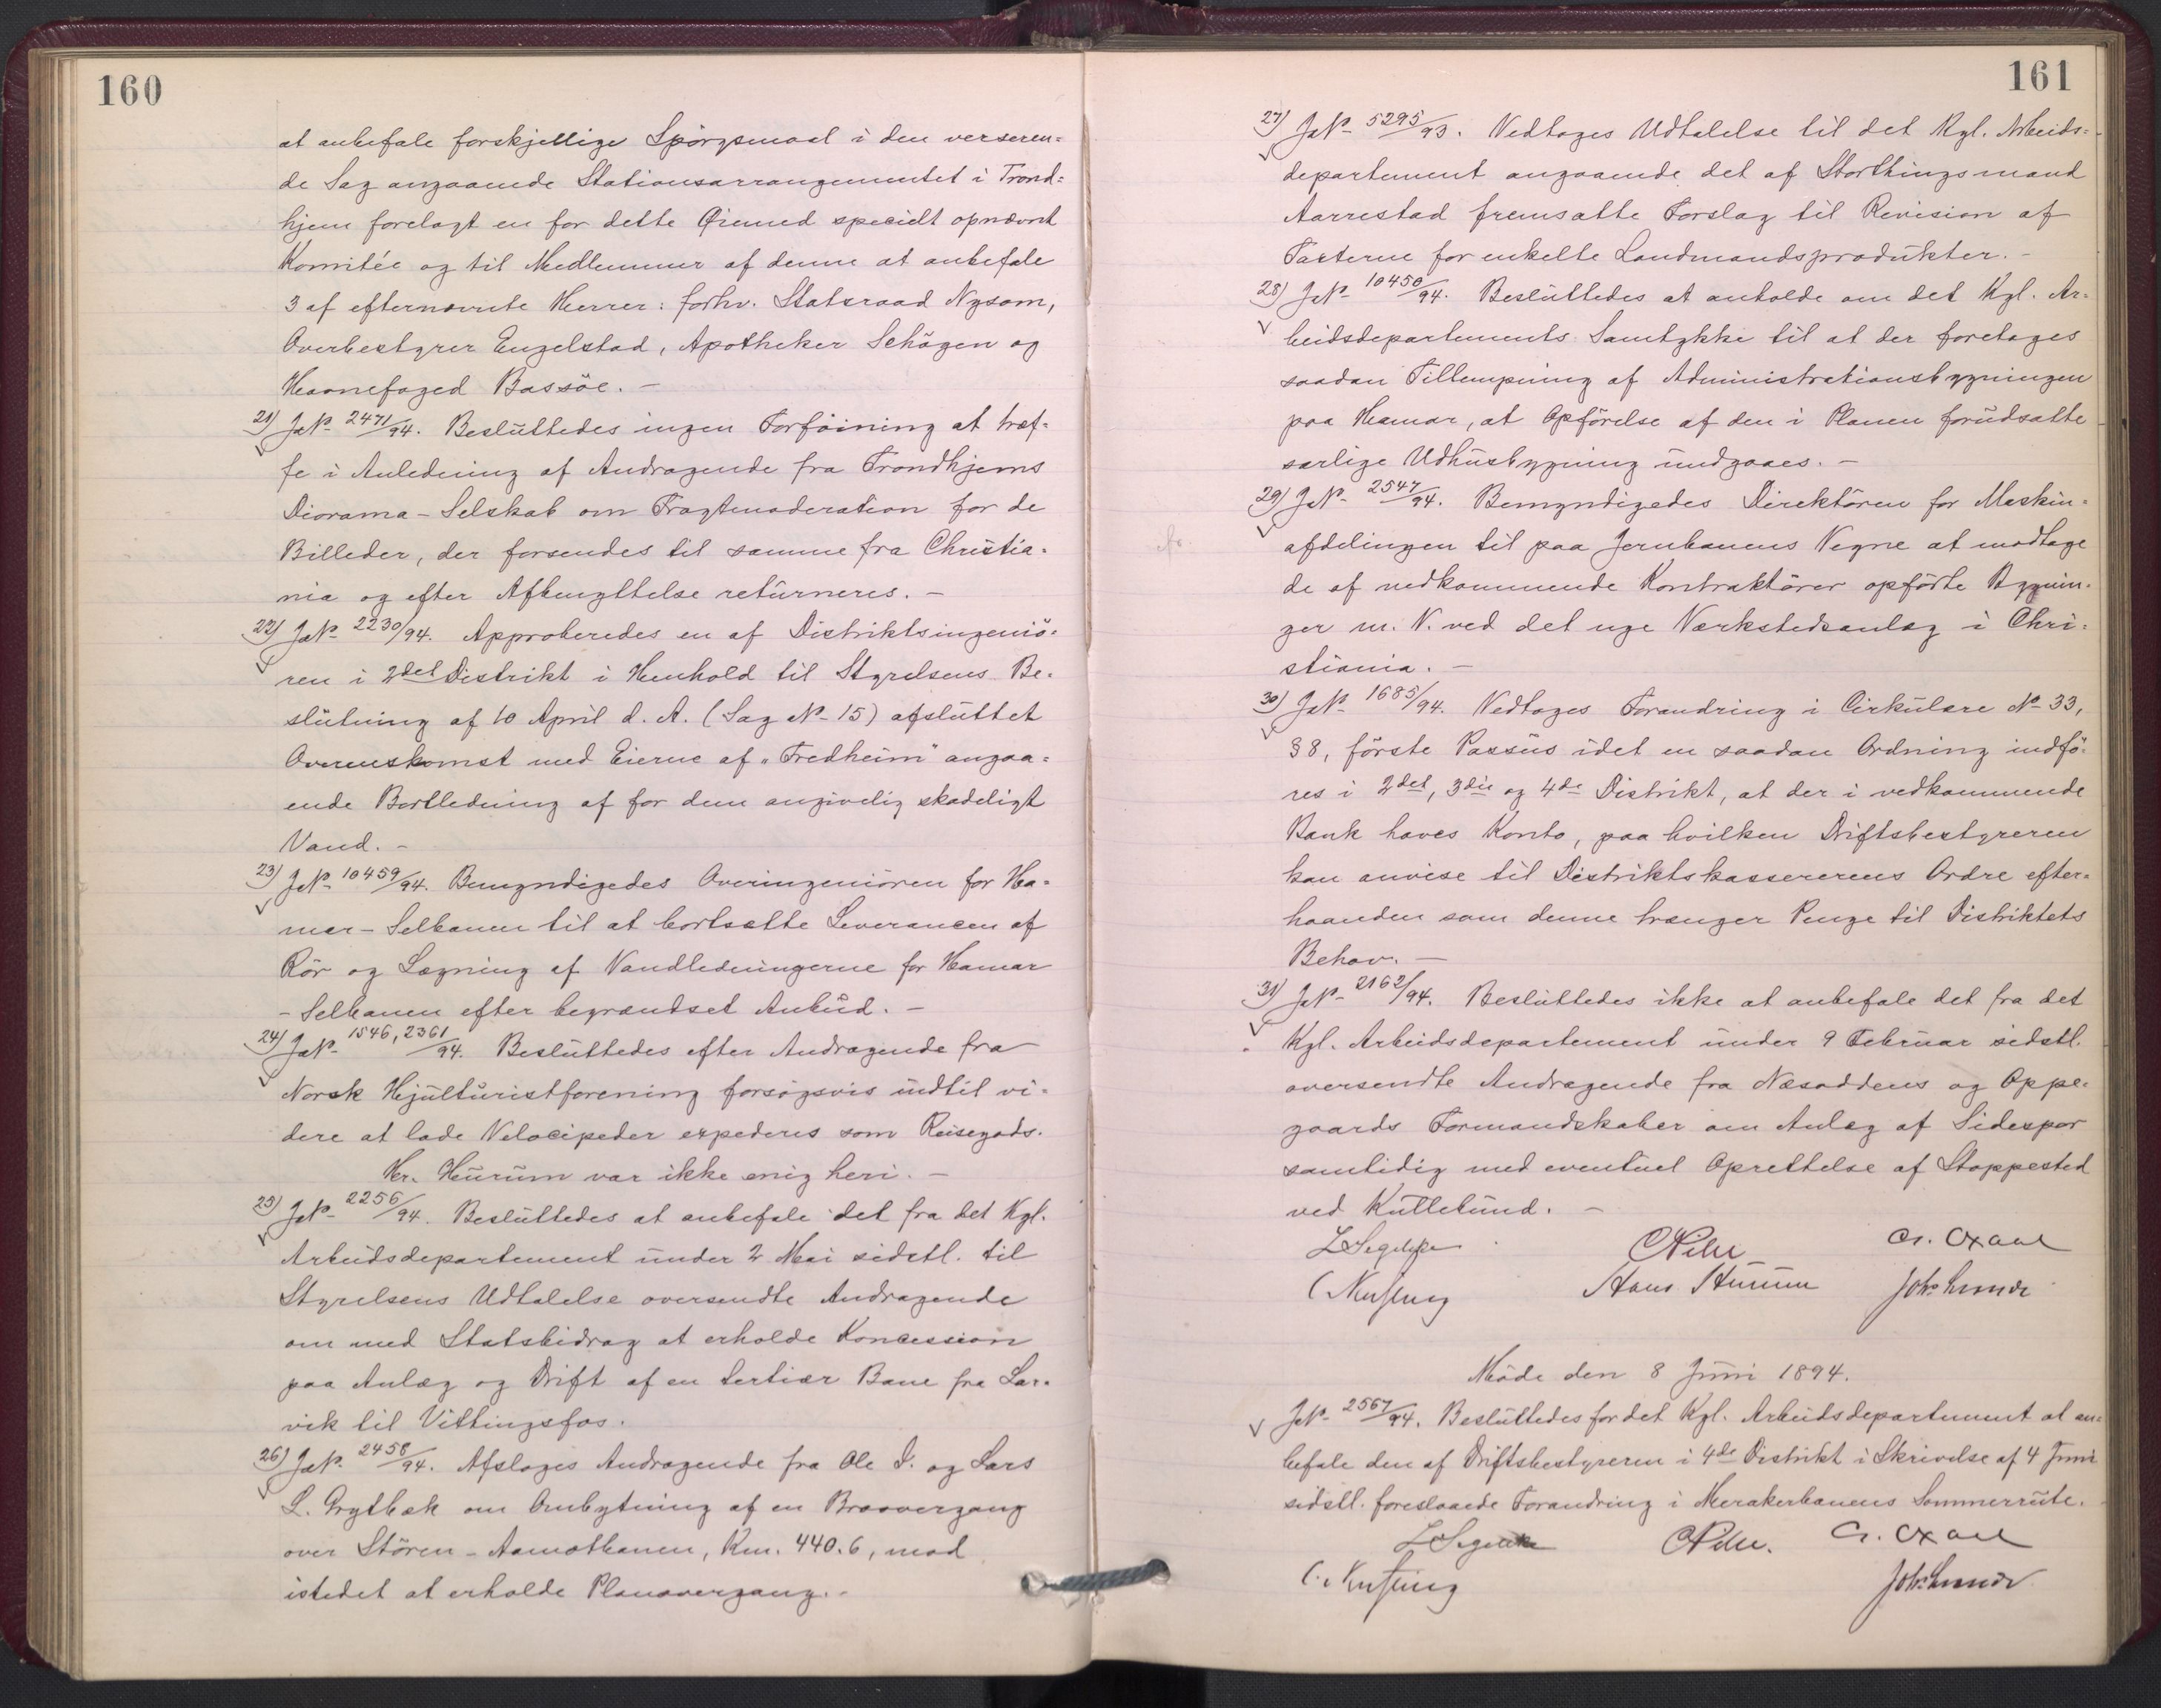 160
at anbefale forskjellige Spörgsmaal i den verseren=
de Sag angaaende Stationsarrangementet i Trond=
hjem forelagt en for dette Øiemed specielt opnævnt
Komitée og til Medlemmer af denne at anbefale
3 af efternævnte Herrer: forhv. Statsraad Nysom,
Overbestyrer Engelstad, Apotheker Schögen og
Havnefoged Bassöe. –
21) J№ 2471/94. Beslüttedes ingen Forföining at træf=
fe i Anledning af Andragende fra Trondhjems
Diorama-Selskab om Fragtmoderation for de
Billeder, der forsendes til samme fra Christia=
nia og efter Afbenyttelse retürneres. –
22) J№ 2230/94. Approberedes en af Distriktsingeniö=
ren i 2det Distrikt i Henhold til Styrelsens Be=
slütning af 10 April d. A. (Sag № 15) afsluttet
Overenskomst med Eierne af "Fredheim" angaa=
ende Bortledning af for dem angivelig skadeligt
Vand. –
23) J№ 10459/94. Bemyndigedes Overingeniören for Ha=
mar-Selbanen til at bortsætte Leverancen af
Rör og Lægning af Vandledningerne for Hamar
-Selbanen efter begrændset Anbüd. –
24) J№ 1546, 2361/94. Beslüttedes efter Andragende fra
Norsk Hjultüristforening forsögsvis indtil vi=
dere at lade Velocipeder expederes som Reisegods.
Hr. Hürüm var ikke enig heri. –
25) J№ 2256/94. Beslüttedes at anbefale det fra det Kgl.
Arbeidsdepartement ünder 2 Mai sidstl. til
Styrelsens Udtalelse oversendte Andragende
om med Statsbidrag at erholde Koncession
paa Anlæg og Drift af en tertiær Bane fra Lar=
vik til Vittingsfos.
26) J№ 2458/94. Afsloges Andragende fra Ole I. og Lars
L. Grytbak om Ombytning af en Broovergang
over Stören-Aamotbanen, Km. 440.6, mod
istedet at erholde Planovergang. –
161
27) J№ 5295/93. Vedtoges Udtalelse til det Kgl. Arbeids=
departement angaaende det af Storthingsmand
Aarrestad fremsatte Forslag til Revision af
Taxterne for enkelte Landmandsprodükter. –
28) J№ 10450/94. Beslüttedes at anholde om det Kgl. Ar=
beidsdepartements Samtykke til at der foretages
saadan Tillempning af Administrationsbygningen
paa Hamar, at Opförelse af den i Planen forüdsatte
særlige Udhüsbygning ündgaaes. –
29) J№ 2547/94. Bemyndigedes Direktören for Maskin=
afdelingen til paa Jernbanens Vegne at modtage
de af vedkommende Kontraktörer opförte Bygnin=
ger m. V. ved det nye Værkstedsanlæg i Chri=
stiania. –
30) J№ 1685/94. Vedtoges Forandring i Cirkülære № 33,
§ 8, förste Passüs idet en saadan Ordning indfö=
res i 2det, 3die og 4de Distrikt, at der i vedkommende
Bank haves Konto, paa hvilken Driftsbestyreren
kan anvise til Distriktskassererens Ordre efter=
haanden som denne trænger Penge til Distriktets
Behov. –
31) J№ 2162/94. Beslüttedes ikke at anbefale det fra det
Kgl. Arbeidsdepartement ünder 9 Februar sidstl.
oversendte Andragende fra Næsoddens og Oppe=
gaards Formandskaber om Anlæg af Sidespor
samtidig med eventüel Oprettelse af Stoppested
ved Küllebünd. –
Hans Hürüm Johs Lunde
Möde den 8 Jüni 1894.
J№ 2567/94. Beslüttedes for det Kgl. Arbeidsdepartement at an=
befale den af Driftsbestyreren i 4de Distrikt i Skrivelse af 4 Juni
sidstl. foreslaaede Forandring i Merakerbanens Sommerrüte.